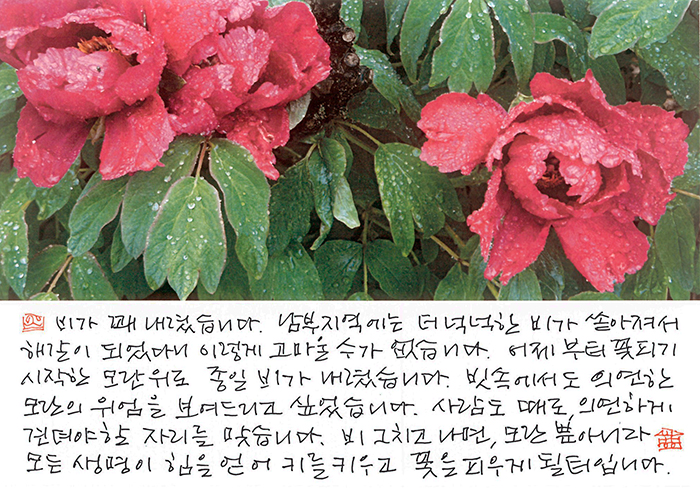 비가 꽤 내렸습니다. 남부지역에는 더 넉넉한 비가 쏟아져서
해갈이 되었다니 이렇게 고마울 수가 없습니다. 어제부터 꽃피기
시작한 모란 위로 종일 비가 내렸습니다. 빗속에서도 의연한
모란의 위엄을 보여드리고 싶었습니다. 사람도 때로, 의연하게
견뎌야 할 자리를 맞습니다. 비 그치고 나면, 모란 뿐 아니라
모든 생명이 힘을 얻어 키를 키우고 꽃을 피우게 될 터입니다.